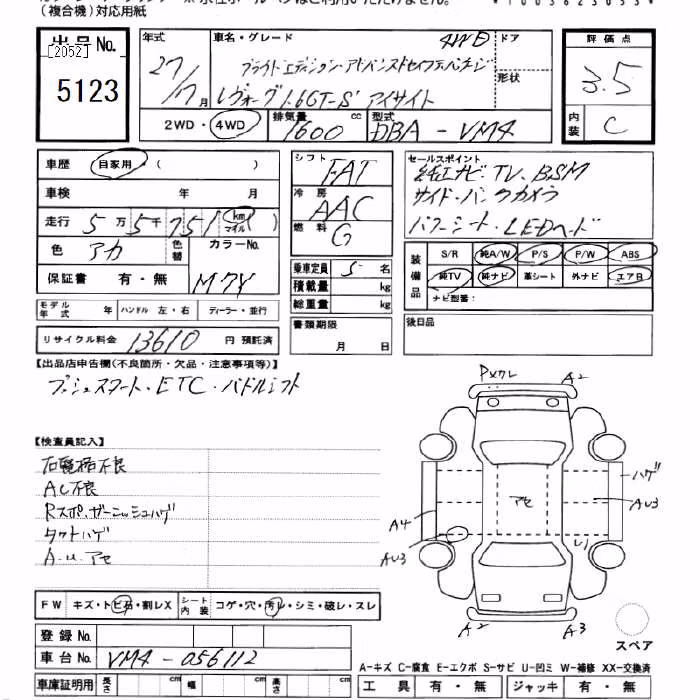 (複合機)対応用紙
*1003623053*
出品No.
[2052]
5123
年式
27/7月
車名・グレード
4WD
ドア
形状
ブライトエディション・アドバンスドセイフティパッケージ
レヴォーグ1.6GT-S アイサイト
評価点
3.5
内装
C
2WD・4WD
排気量
1600
cc
型式
DBA-VM4
車歴
自家用・( )
車検 年 月
走行 5万5千751 km マイル
色
アカ
色替
カラーNo.
M7Y
保証書 有・無
モデル年式 年
ハンドル 左・右
ディーラー・並行
リサイクル料金 13610 円 預託済
シフト
FAT
冷房
AAC
燃料
G
乗車定員 5 名
積載量 kg
総重量 kg
書類期限
月 日
セールスポイント
純正ナビ・TV、BSM
サイド・バックカメラ
パワーシート・LEDヘッド
装備品
S/R 純A/W P/S P/W ABS
純TV 純ナビ 革シート 外ナビ エアB
ナビ型番:
後日品
【出品店申告欄(不良箇所・欠品・注意事項等)】
プッシュスタート・ETC・パドルシフト
【検査員記入】
AC不良
Rスポ、ガーニッシュハゲ
タワトハゲ
A・U、アセ
PメクレA2
ハゲ
AU3
アセ
A4
AU3
A2
A3
スペア
FW キズ・トビ石・割レX
シート内装 コゲ・穴・汚レ・シミ・破レ・スレ
登録No.
車台No. VM4-056112
車庫証明用 長さ cm 幅 cm 高さ cm
A-キズ C-腐食 E-エクボ S-サビ U-凹ミ W-補修 XX-交換済
工具 有・無 ジャッキ 有・無